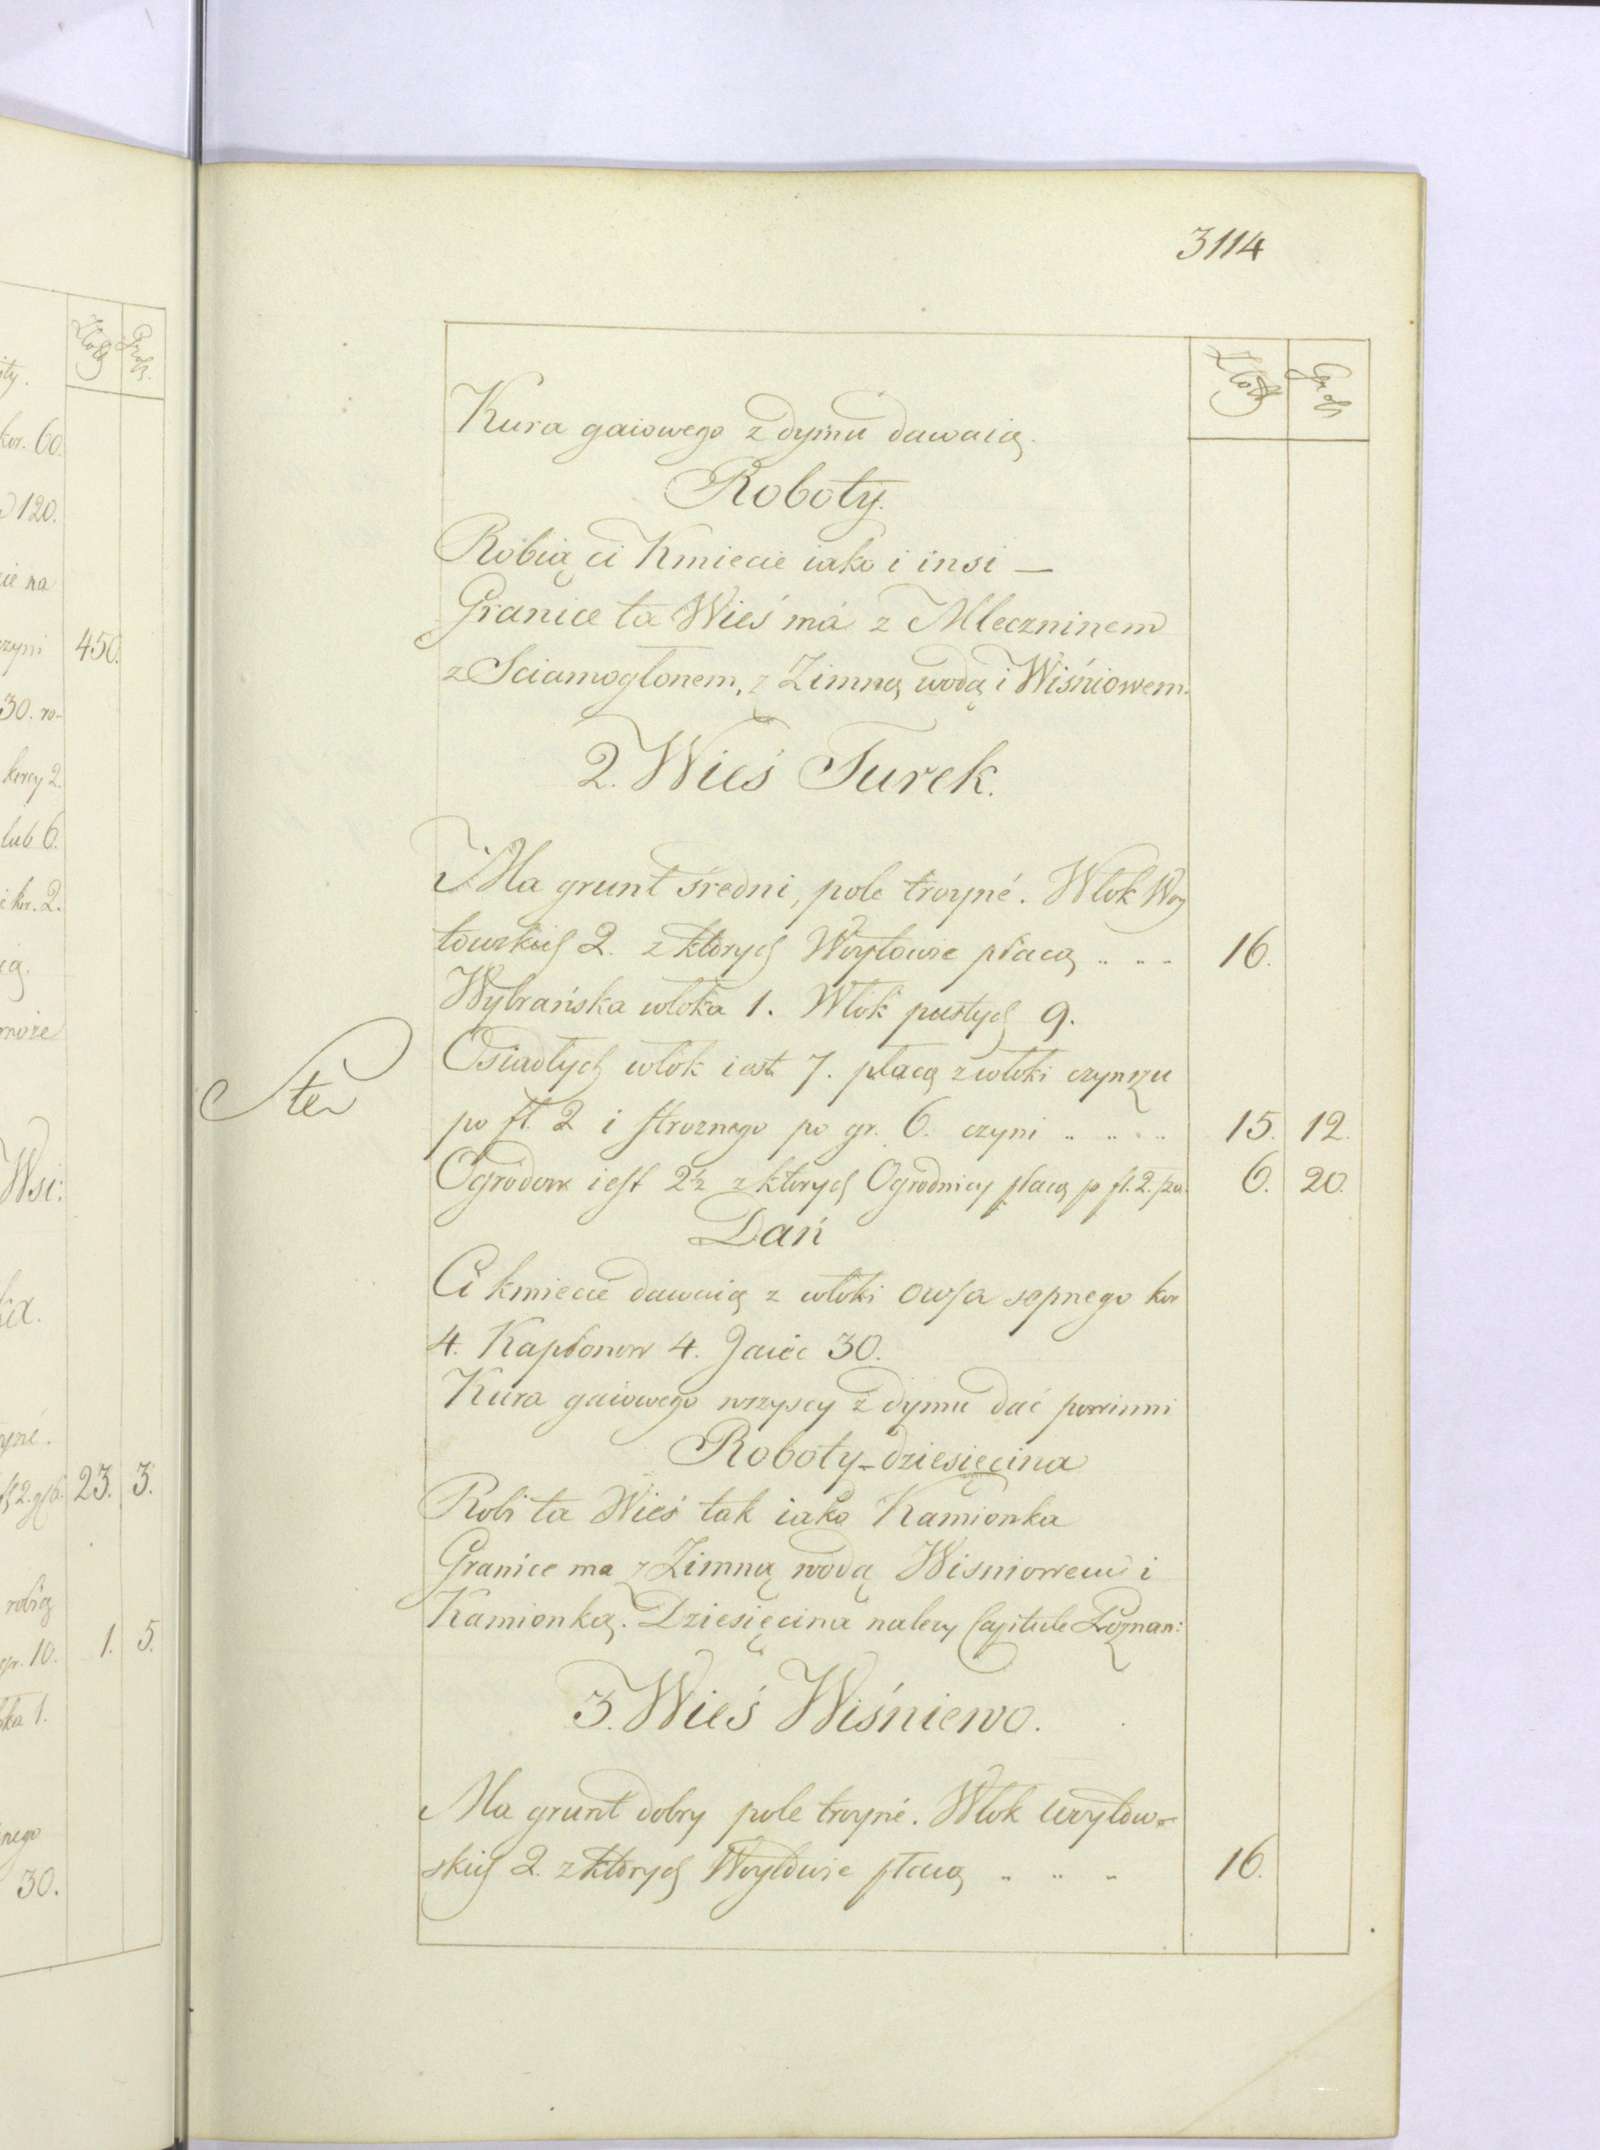 3114
Złote Grosz
Kura gaiowego z dymu dawaią.
Roboty.
Robią ci Kmiecie iako i insi —
Granice ta Wieś má z Mleczninem
z Sciamogłonem, z Zimną wodą i Wiśniowem.
2. Wieś Turek.
Ma grunt średni, pole troyné. Włok Woy
towskich 2. z których Woytowie płacą .. .. .. 16.
Wybrańska włoka 1. Włók pustych 9.
Osiadłych włók iest 7. płacą z włoki czynszu
po fl. 2 i stroznego po gr. 6. czyni .. .. .. 15. 12.
Ogrodow iest 2½ z których Ogrodnicy płacą p fl. 2. 6. 20.
Dań
Ci kmiecie dawaią z włoki owsa sepnego kor
4. Kapłonow 4. Jaiec 30.
Kura gaiowego wszyscy z dymu dać powinni
Roboty – dziesięcina
Robi ta Wieś tak iako Kamionka
Granice ma z Zimną wodą Wisniowem i
Kamionką. Dziesięcina nalezy Capitule Poznan:
3. Wieś Wiśniewo.
Ma grunt dobry pole troyné. Włok woytow-
skich 2. z których Woytowie płacą .. .. .. 16.
Złote Grosz.
kor. 60.
120.
cie na
czyni 450.
30. ro-
korcy 2.
lub 6.
kor. 2.
może
Wsi:
23. 3.
robią
gr. 10. 1. 5.
30.